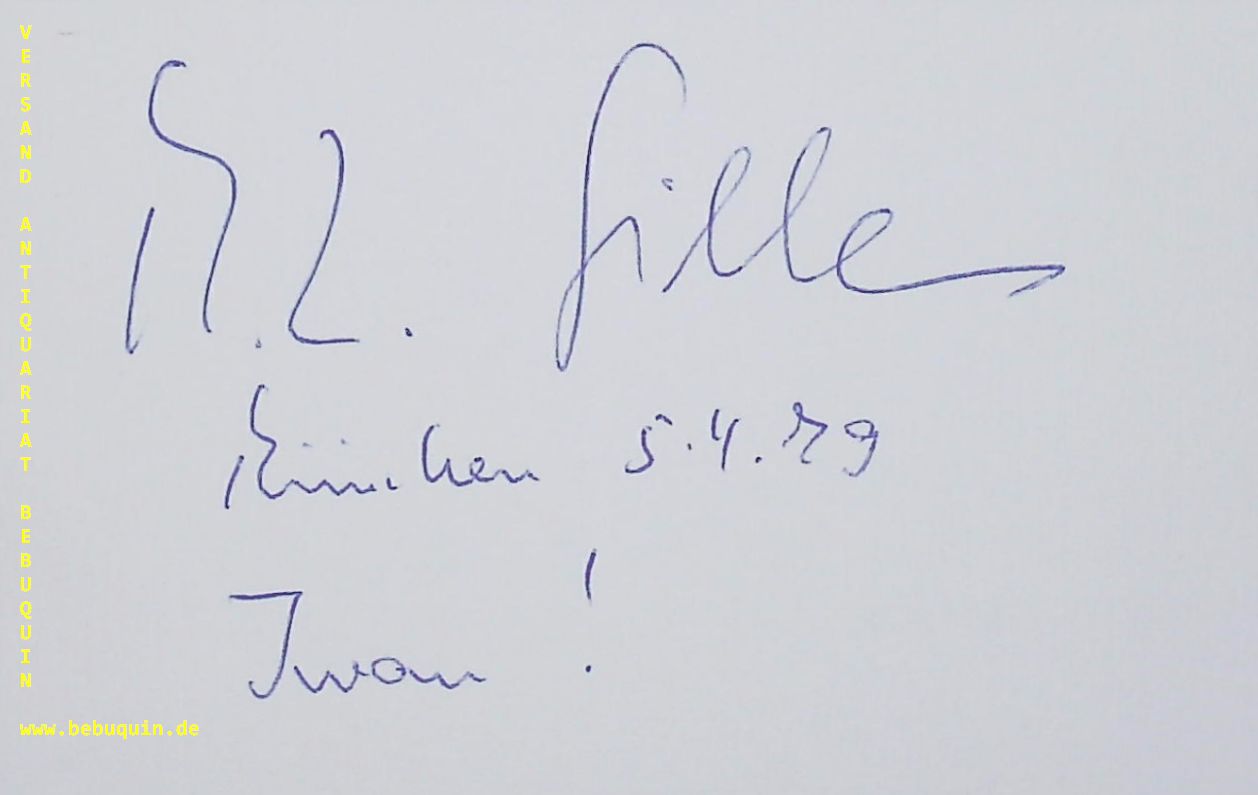 M. L. Gilles
München 5.4.79
Iwan !
VERSAND ANTIQUARIAT BEBUQUIN
www.bebuquin.de